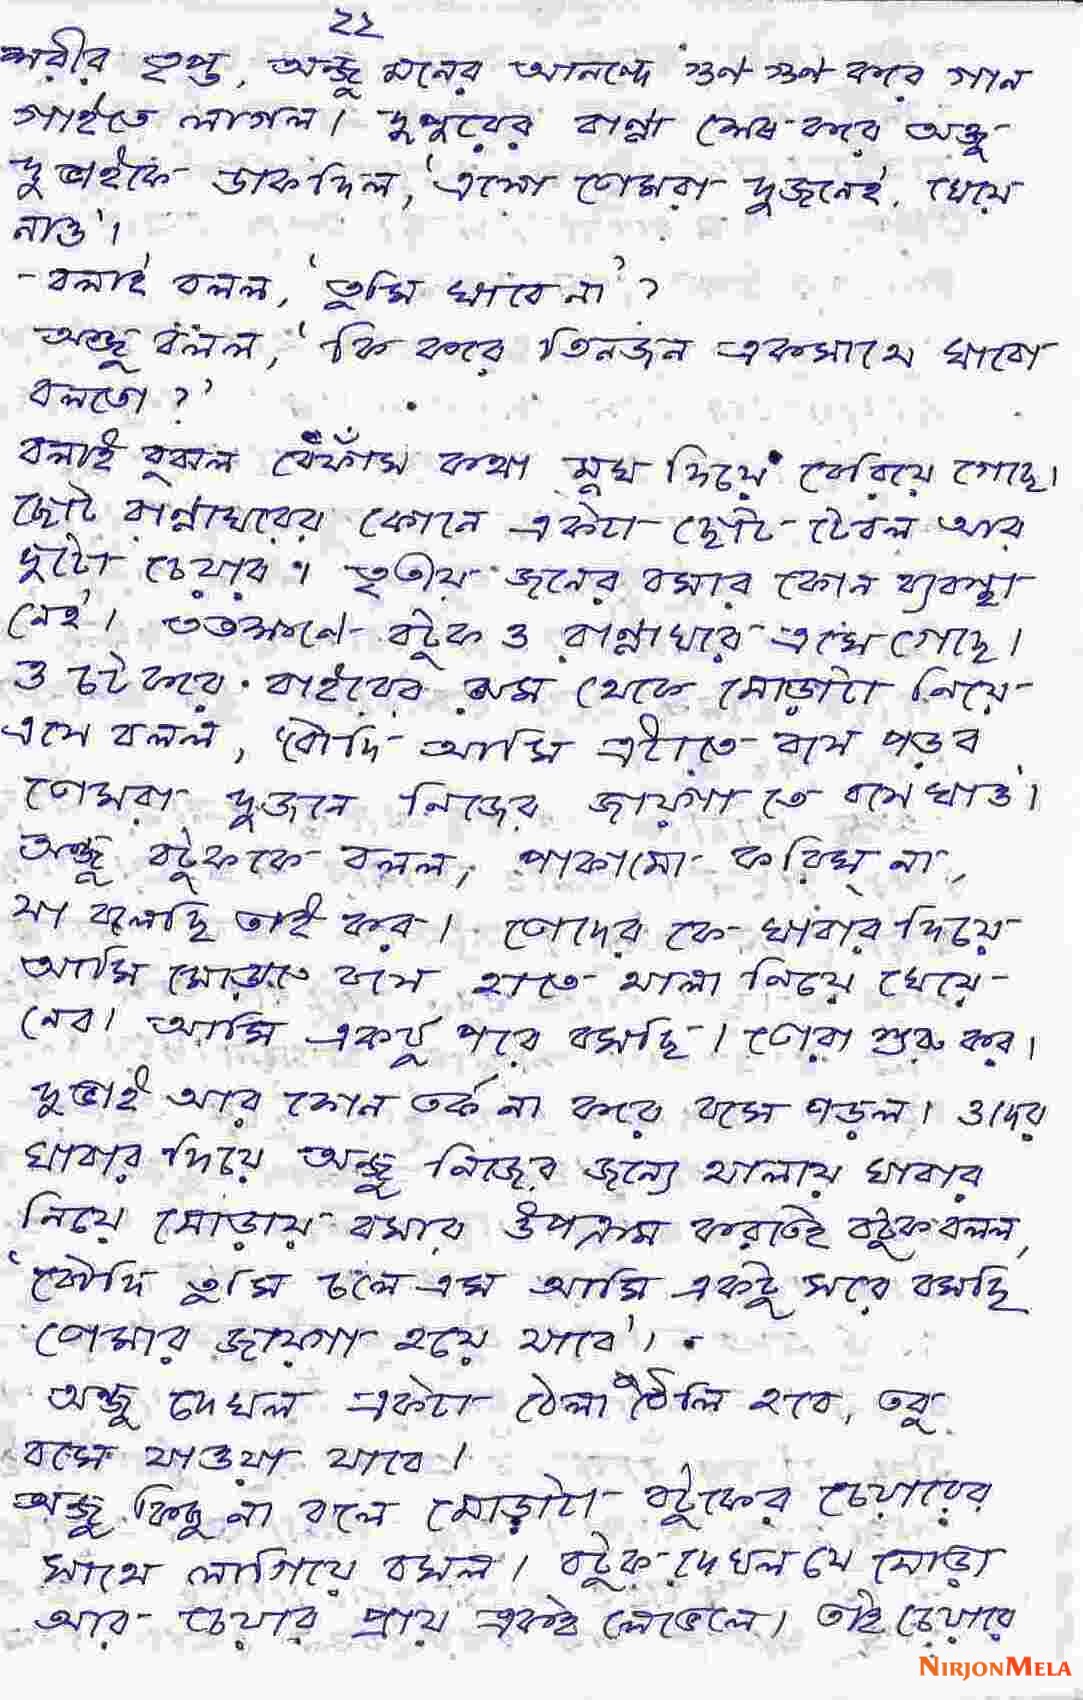 ২২
শরীর তৃপ্ত, অঞ্জু মনের আনন্দে গুণ গুণ করে গান
গাইতে লাগল। দুপুরের রান্না শেষ করে অঞ্জু
দুভাইকে ডাকদিল, 'এসো তোমরা দুজনেই, খেয়ে
নাও'।
- বলাই বলল, 'তুমি খাবেনা'?
অঞ্জু বলল, 'কি করে তিনজন একসাথে খাবো
বলতো?'
বলাই বুঝল বেফাঁস কথা মুখ দিয়ে বেরিয়ে গেছে।
ছোট রান্নাঘরের কোনে একটা ছোট টেবল আর
দুটো চেয়ার। তৃতীয় জনের বসার কোন ব্যবস্থা
নেই। ততক্ষণে বটুক ও রান্নাঘরে এসে গেছে।
ও চট করে বাইরের রুম থেকে মোড়াটা নিয়ে
এসে বলল, 'বৌদি আমি এটাতে বসে পড়ব
তোমরা দুজনে নিজের জায়গা তে বসে খাও'।
অঞ্জু বটুককে বলল, পাকামো করিস না,
যা বলেছি তাই কর। তোদের কে খাবার দিয়ে
আমি মোড়াতে বসে হাতে থালা নিয়ে খেয়ে
নেব। আমি একটু পরে বসছি। তোরা শুরু কর।
দুভাই আর কোন তর্ক না করে বসে পড়ল। ওদের
খাবার দিয়ে অঞ্জু নিজের জন্যে থালায় খাবার
নিয়ে মোড়ায় বসার উপক্রম করতেই বটুক বলল,
'বৌদি তুমি চলে এস আমি একটু সরে বসছি
তোমার জায়গা হয়ে যাবে'।
অঞ্জু দেখল একটা ঠেলাঠেলি হবে, তবু
বসে যাওয়া যাবে।
অঞ্জু কিছু না বলে মোড়াটা বটুকের চেয়ারের
সাথে লাগিয়ে বসল। বটুক দেখল যে মোড়া
আর চেয়ার প্রায় একই লেভেলে। তাই চেয়ারে
NIRJONMELA